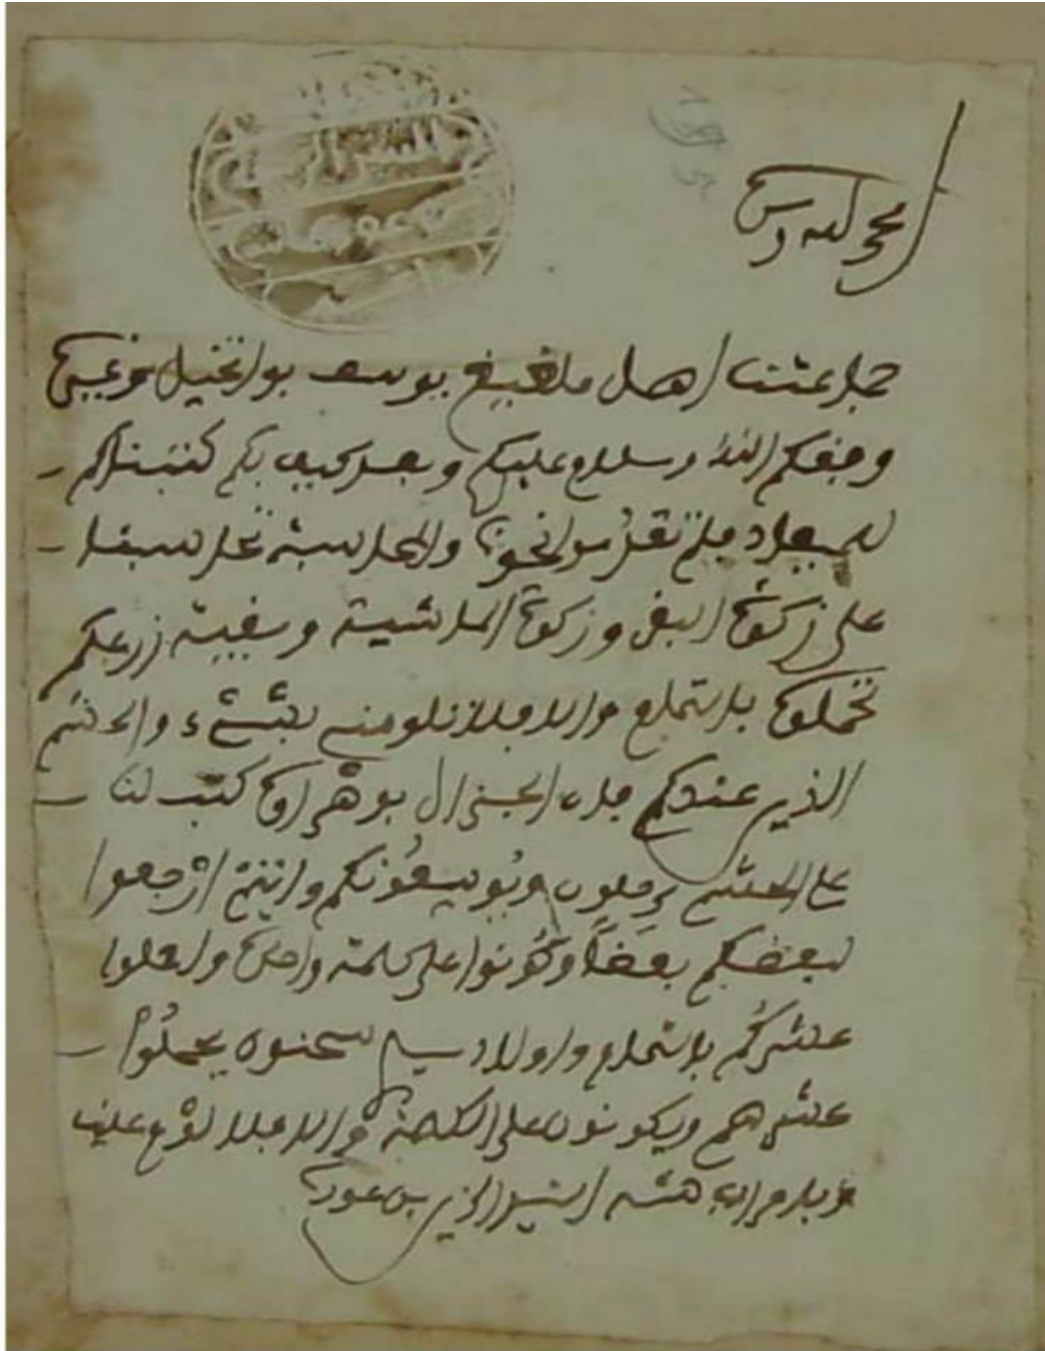 الحمد لله وحده
جماعتنا اهل يوسف
وفقكم الله وسلام عليكم وبعد كيف بكم كتبنا لكم
للميعاد فلم تقدموا نحونا والمحاسبة تحاسبنا
على زكوة البقر وزكوة الماشية وبقية زرعكم
تحملوه بالتمام والا فلا تلومني بشيء والحشم
الذين عندكم فان الجنرال كتب لنا
على الحشم يرحلون ويوسعونكم وانتم ارجعوا
لبعضكم بعضاً وكونوا على كلمة واحدة
عشركم بالتمام واولاد سي سحنون يحملوا
عشرهم ويكونون على الكلمة والا فلا لوم علينا
السيد الزين بن عودة